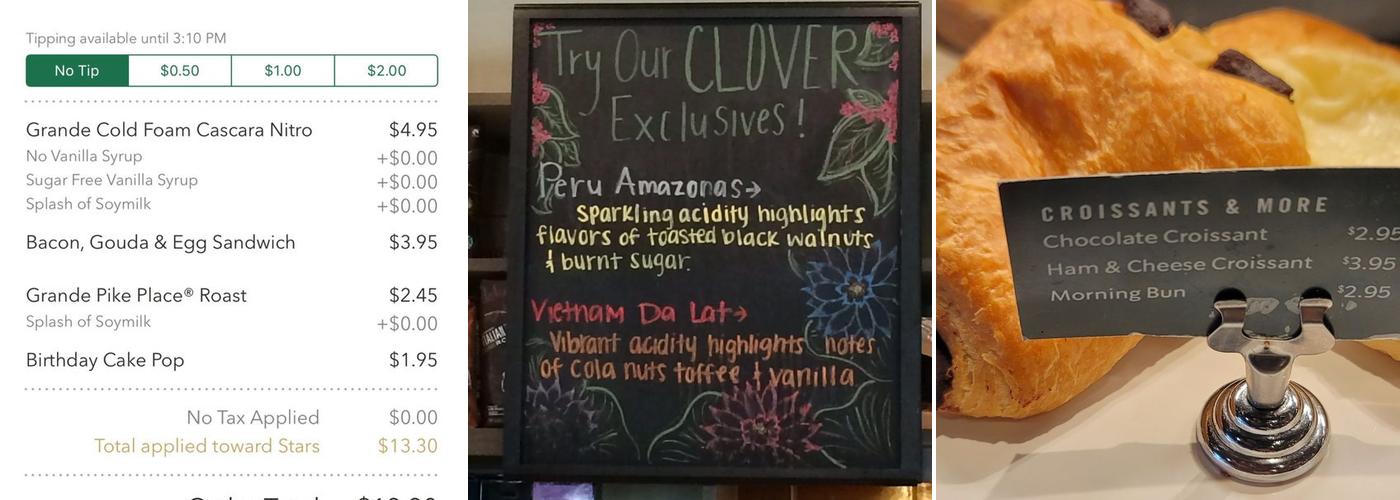 Tipping available until 3:10 PM
No Tip $0.50 $1.00 $2.00
Grande Cold Foam Cascara Nitro $4.95
No Vanilla Syrup +$0.00
Sugar Free Vanilla Syrup +$0.00
Splash of Soymilk +$0.00
Bacon, Gouda & Egg Sandwich $3.95
Grande Pike Place® Roast $2.45
Splash of Soymilk +$0.00
Birthday Cake Pop $1.95
No Tax Applied $0.00
Total applied toward Stars $13.30
Try Our CLOVER
Exclusives!
Peru Amazonas→
Sparkling acidity highlights
flavors of toasted black walnuts
& burnt sugar.
Vietnam Da Lat→
Vibrant acidity highlights notes
of cola nuts toffee & vanilla
CROISSANTS & MORE
Chocolate Croissant $2.95
Ham & Cheese Croissant $3.95
Morning Bun $2.95